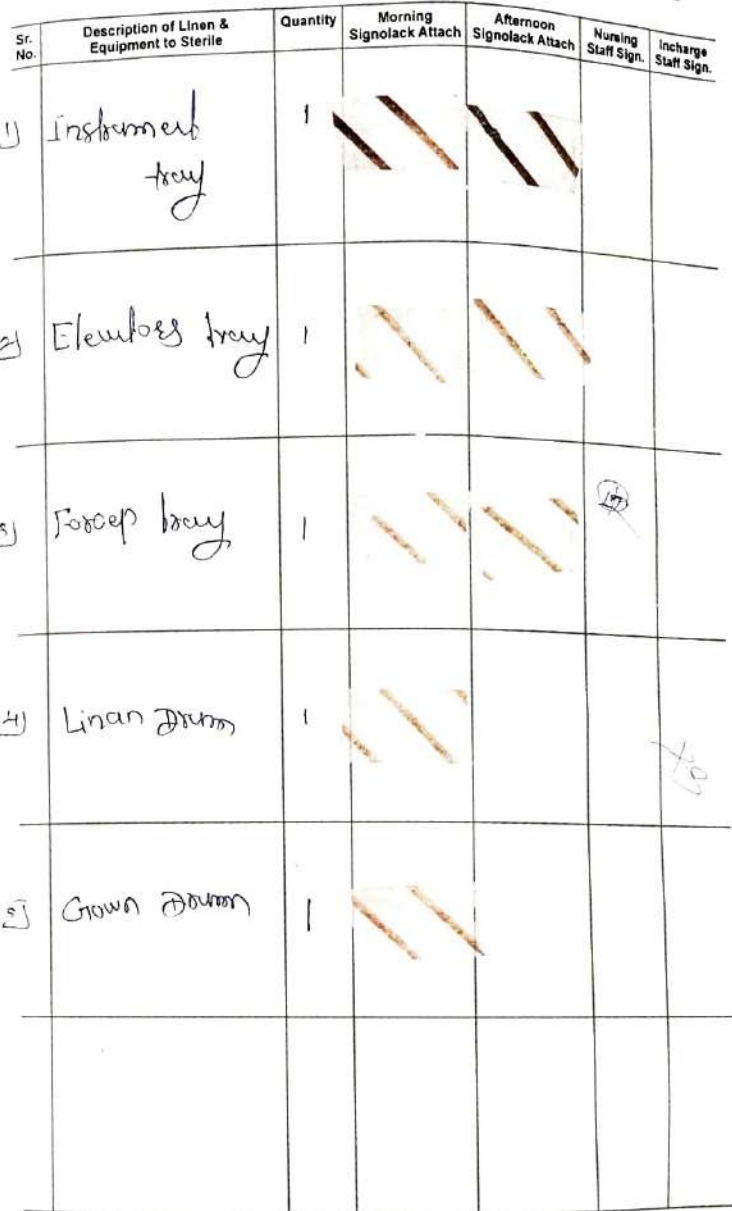 Sr. No. Description of Linen & Equipment to Sterile Quantity Morning Signolack Attach Afternoon Signolack Attach Nursing Staff Sign. Incharge Staff Sign.
1) Instrument tray 1
2) Elevators tray 1
3) Forcep tray 1
4) Linan Drum 1
5) Gown Drum 1